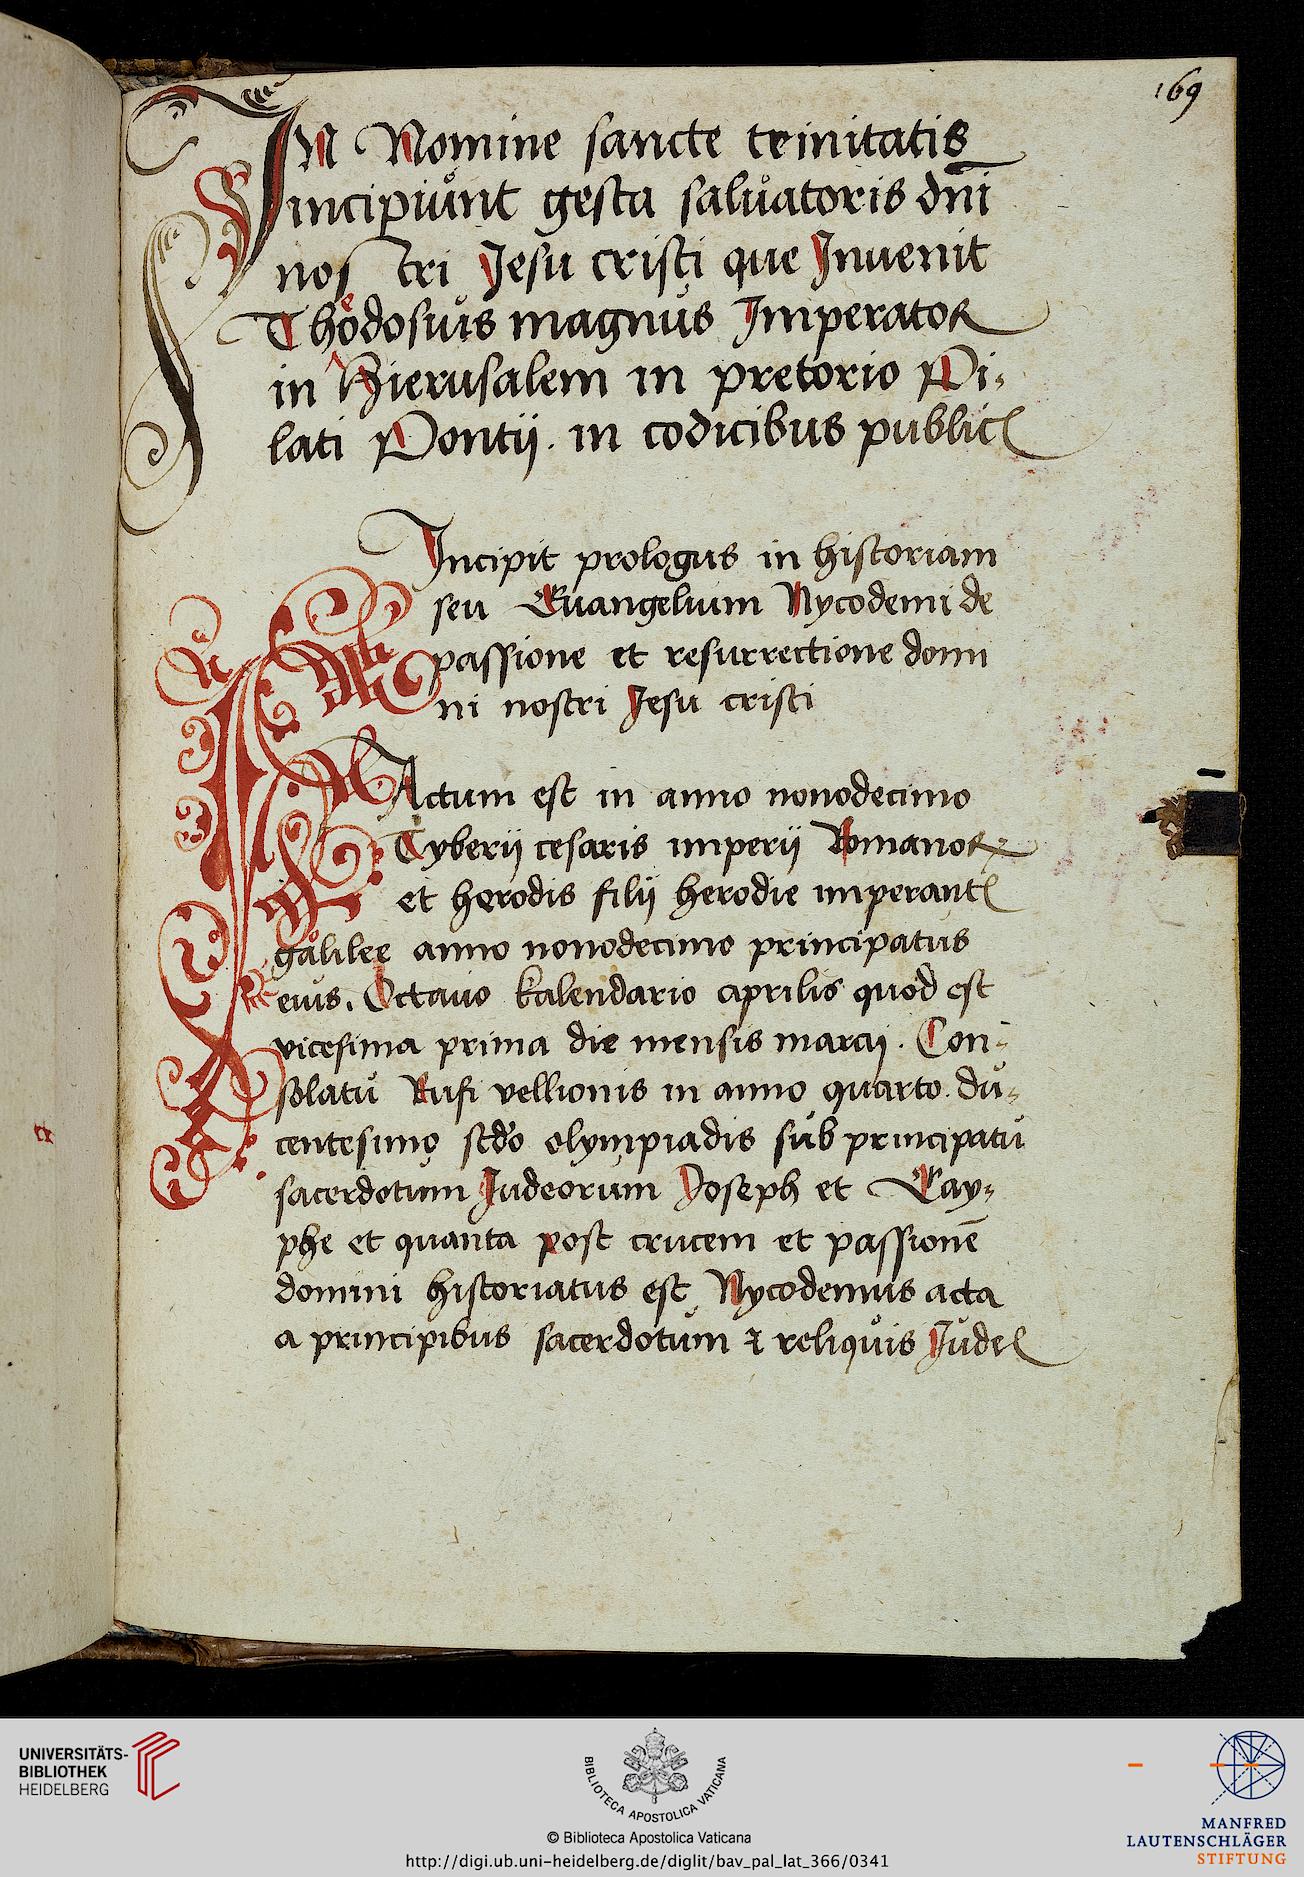 169
IN Nomine sancte trinitatis
incipiunt gesta saluatoris dni
nos tri Jesu cristi que Inuenit
Theodosius magnus Imperator
in Hierusalem in pretorio Pi-
lati Pontij. in codicibus public
Incipit prologus in historiam
seu Euangelium Nycodemi de
passione et resurrectione domi
ni nostri Jesu cristi
FActum est in anno nonodecimo
Tyberij cesaris imperij Romanor
et herodis filij herodie imperant
galilee anno nonodecimo principatus
eius. Octauo kalendario aprilis quod est
vicesima prima die mensis marcij. Con-
solatu Rufi vellionis in anno quarto. du-
centesimo scdo olympiadis sub principatu
sacerdotum Judeorum Joseph et Cay-
phe et quanta post crucem et passione̅
domini historiatus est Nycodemus acta
a principibus sacerdotum ⁊ reliquis Jude
UNIVERSITÄTS-
BIBLIOTHEK
HEIDELBERG
BIBLIOTECA APOSTOLICA VATICANA
© Biblioteca Apostolica Vaticana
http://digi.ub.uni-heidelberg.de/diglit/bav_pal_lat_366/0341
MANFRED
LAUTENSCHLÄGER
STIFTUNG